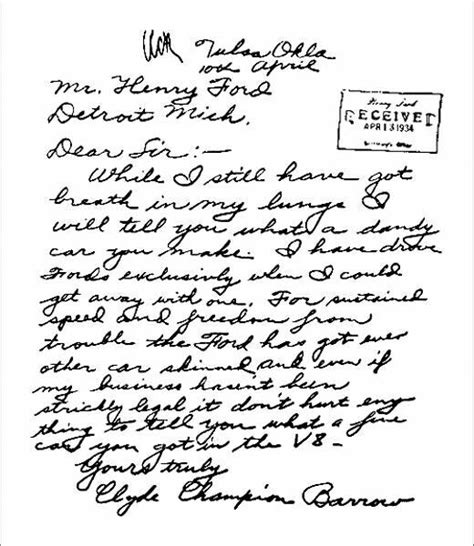 Tulsa Okla
10th April
Mr. Henry Ford
Detroit Mich.
Henry Ford
RECEIVED
APR 13 1934
Secretary's Office
Dear Sir:—
While I still have got
breath in my lungs I
will tell you what a dandy
car you make. I have drove
Fords exclusivly when I could
get away with one. For sustained
speed and freedom from
trouble the Ford has got ever
other car skinned and even if
my business hasn't been
strickly legal it don't hurt eny
thing to tell you what a fine
car you got in the V8—
Yours truly
Clyde Champion Barrow